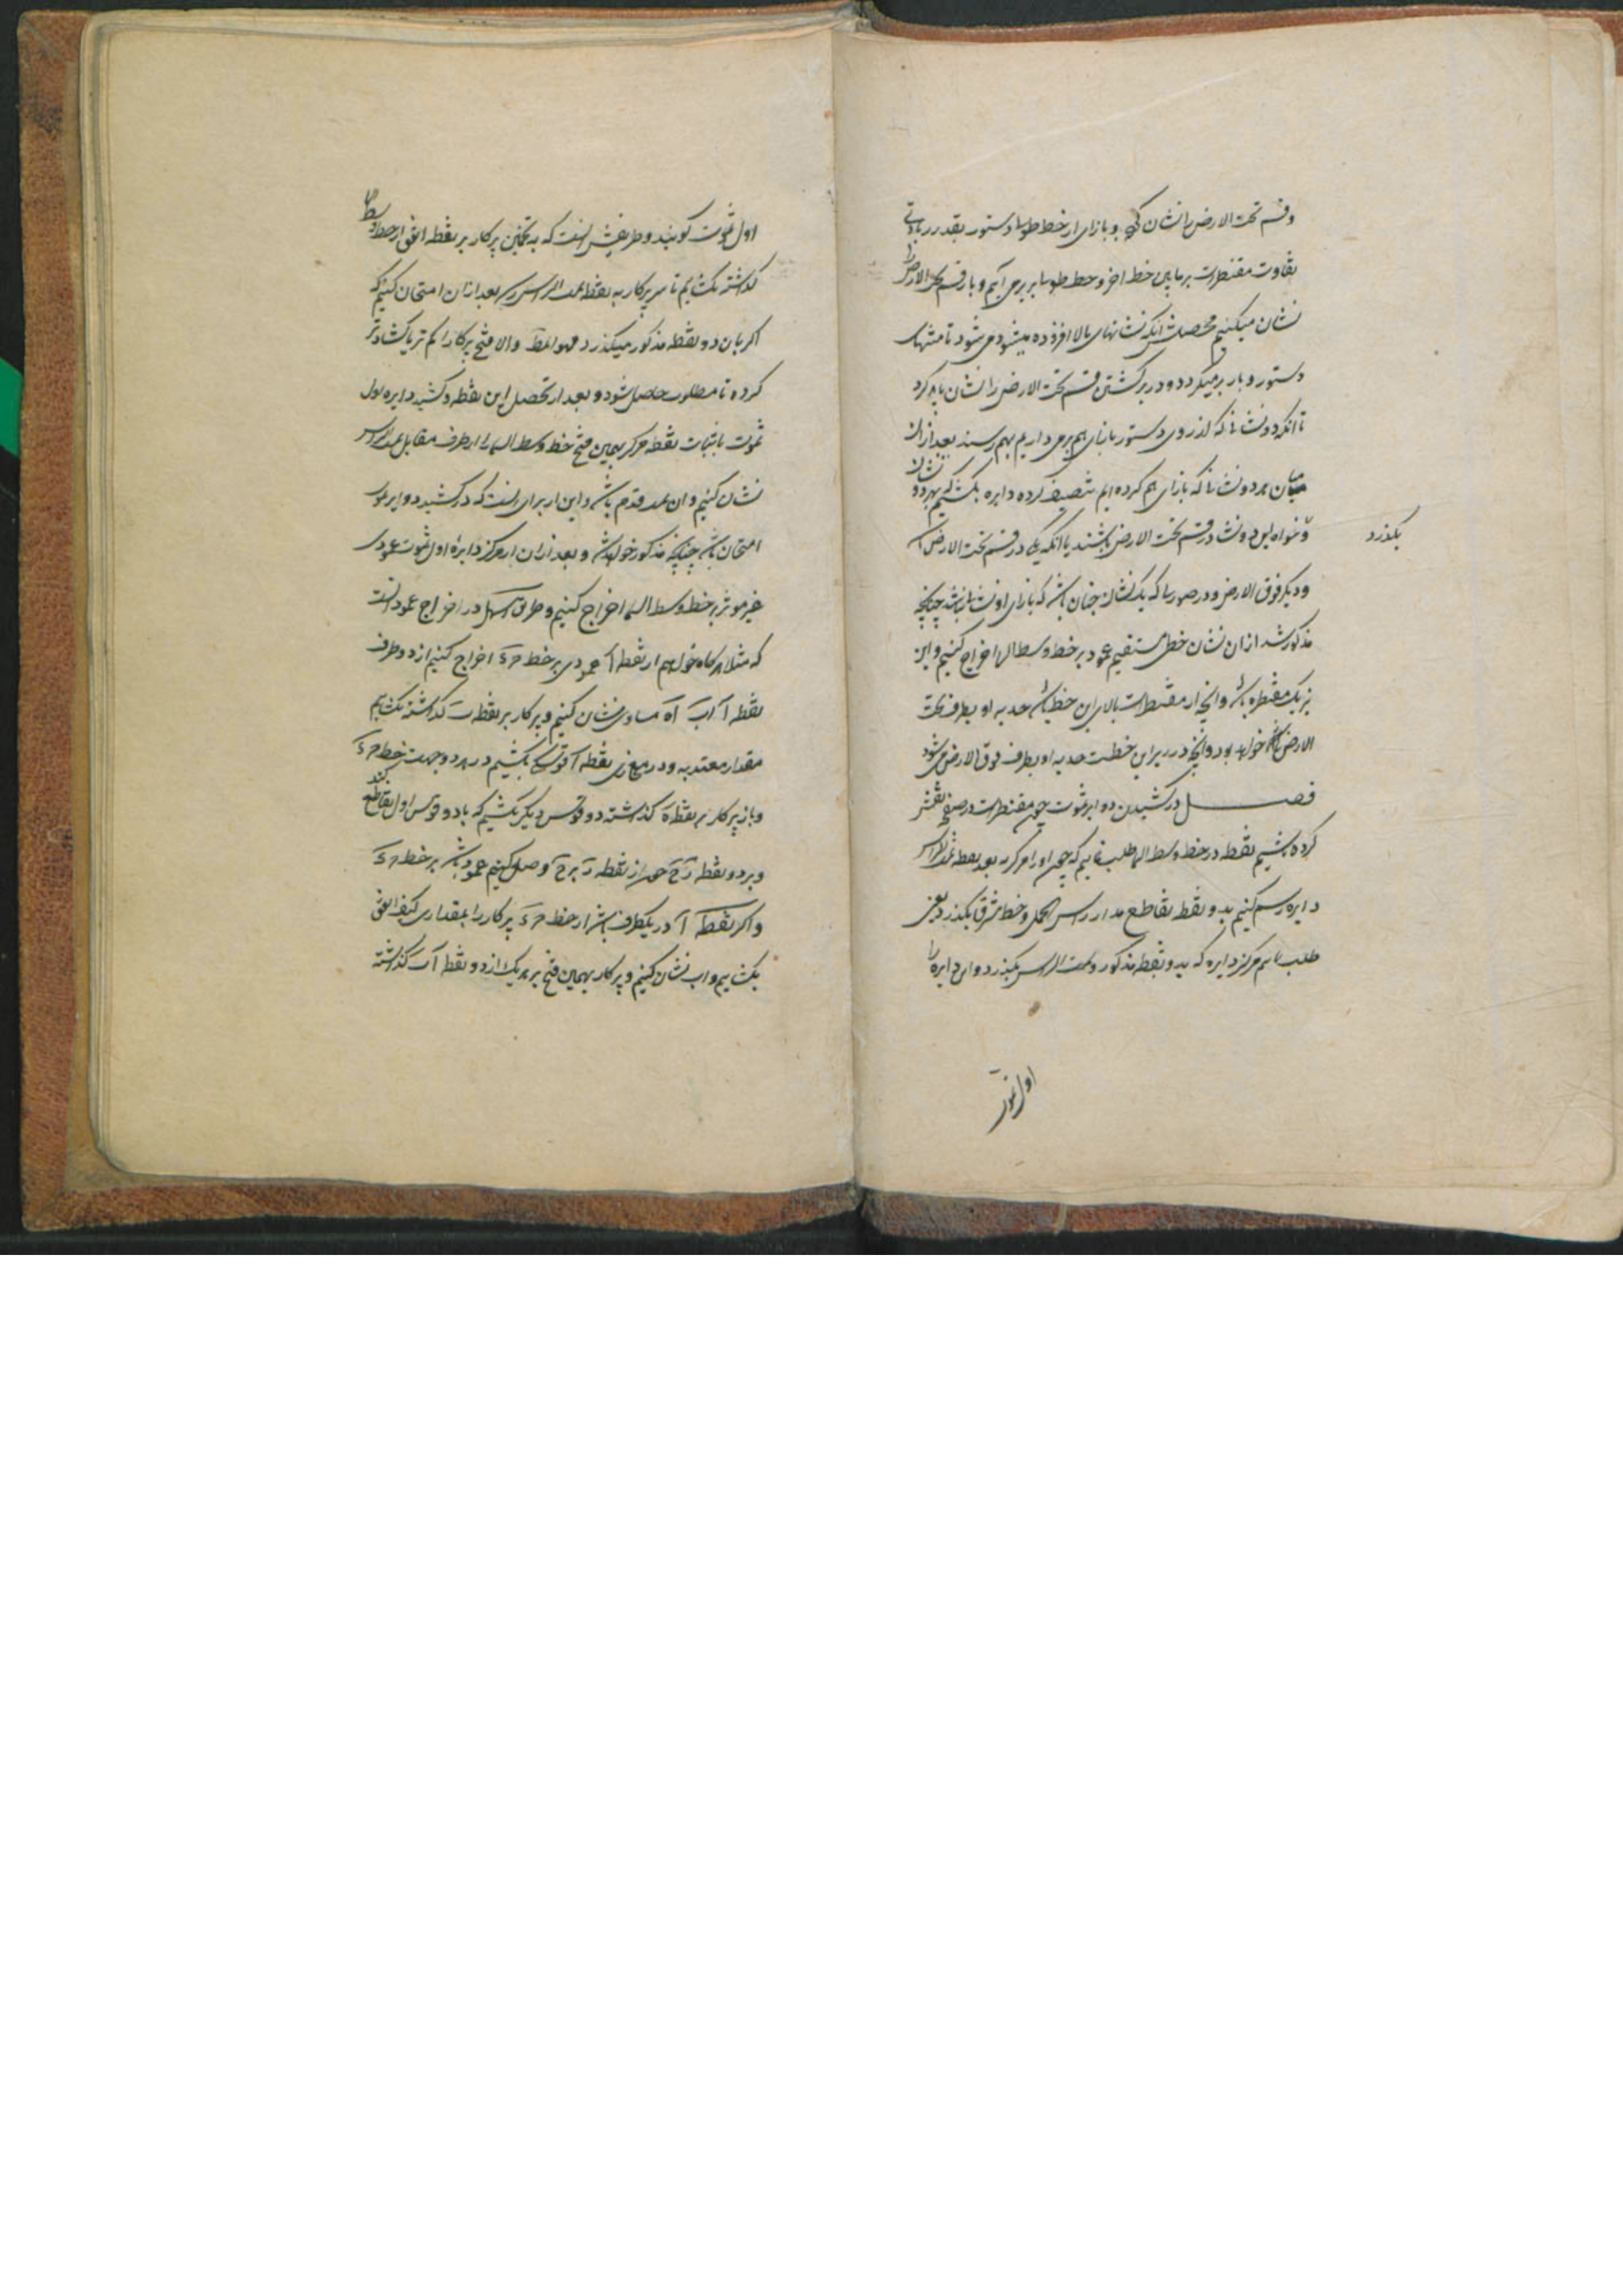 وقسم تحت الارض را نشان کنیم و بازای از خط طولها و دستور بقدر زیادتی
تفاوت مقنطرات بر مابین خط اخر و خط طولها بر می آییم و بار قسم تحت الارض را
نشان میکنیم محصلش آنکه نشانهای بالا افزوده میشود می شود تا منتهای
دستور و بار بر میگردد و در برگشتن قسم تحت الارض را نشان باید کرد
تا آنکه دو نشانها که از روی دستور بازای هم بر می داریم بهم رسند بعد ازان
میان هر دو نشانها که بازای هم کرده ایم تنصیف کرده دایره بکشیم که بهر دو نشان
بگذرد
و خواه این دو نشان در قسم تحت الارض باشند یا آنکه یکی در قسم تحت الارض باشد
و دیگر فوق الارض و در صورتیکه یک نشان چنان باشد که بازای او نشان نباشد چنانچه
مذکور شد ازان نشان خطی مستقیم عمود بر خط وسط السما اخراج کنیم و این
نیز یک مقنطره باشد و آنچه از مقنطرات بالای این خط باشد حدبه او بطرف تحت
الارض خواهد بود و آنچه در زیر این خط است حدبه او بطرف فوق الارض می شود
فصل در کشیدن دوایر سموت چون مقنطرات در صفحه نقش
کرده باشیم نقطه در خط وسط السما طلب نماییم که چون او را مرکز به بعد نقطه سمت الراس
دایره رسم کنیم بدو نقطه تقاطع مدار راس الحمل و خط مشرق بگذرد یعنی
طلب نماییم مرکز دایره که بدو نقطه مذکور و سمت الراس بگذرد و این دایره را
اول سموت
اول سموت گویند و طریقش انست که به تخمین پرکار بر نقطه اتفق از خط وسط السما
گذاشته بگشاییم تا سر پرکار به نقطه سمت الراس رسد بعد ازان امتحان کنیم که
اگر بان دو نقطه مذکور میگذرد فهو المط والا فتح پرکار را کم تر یا گشاده تر
کرده تا مطلوب حاصل شود و بعد از تحصیل این نقطه و کشیدن دایره اول
سموت باثبات نقطه مرکز بهمین فتح خط وسط السما را از طرف مقابل سمت الراس
نشان کنیم و ان سمت قدم باشد و این از برای انست که در کشیدن دوایر سموت
امتحان باشد چنانچه مذکور خواهد شد و بعد ازان از مرکز دایره اول سموت عمودی
غیر موثر بر خط وسط السما اخراج کنیم و طریق اسهل در اخراج عمود انست
که مثلا هرگاه خواهیم از نقطه آ عمودی بر خط حَ ءَ اخراج کنیم از دو طرف
نقطه آ آب آه مساوی نشان کنیم و پرکار بر نقطه ب گذاشته بگشاییم
مقدار معتد به و در موازی نقطه آ قوسی بکشیم در هر دو جهت خط حَ ءَ
و باز پرکار بر نقطه ه گذاشته دو قوس دیگر بکشیم که با دو قوس اول تقاطع کند
و بر دو نقطه زَ حَ چون از نقطه زَ بر حَ وصل کنیم عمود باشد بر خط حَ ءَ
و اگر نقطه آ در یکطرف باشد از خط حَ ءَ پرکار را بمقداری کیف اتفق
بگشاییم و آب نشان کنیم و پرکار بهمین فتح بر هر یک از دو نقطه آ ب گذاشته